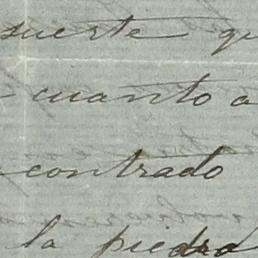 suerte qu
cuanto a
contrado
la piedra